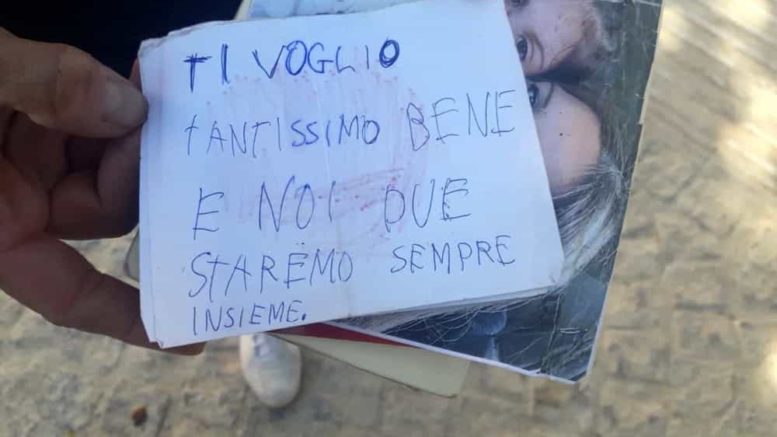 TI VOGLIO
tANTISSIMO BENE
E NOI DUE
STAREMO SEMPRE
INSIEME.